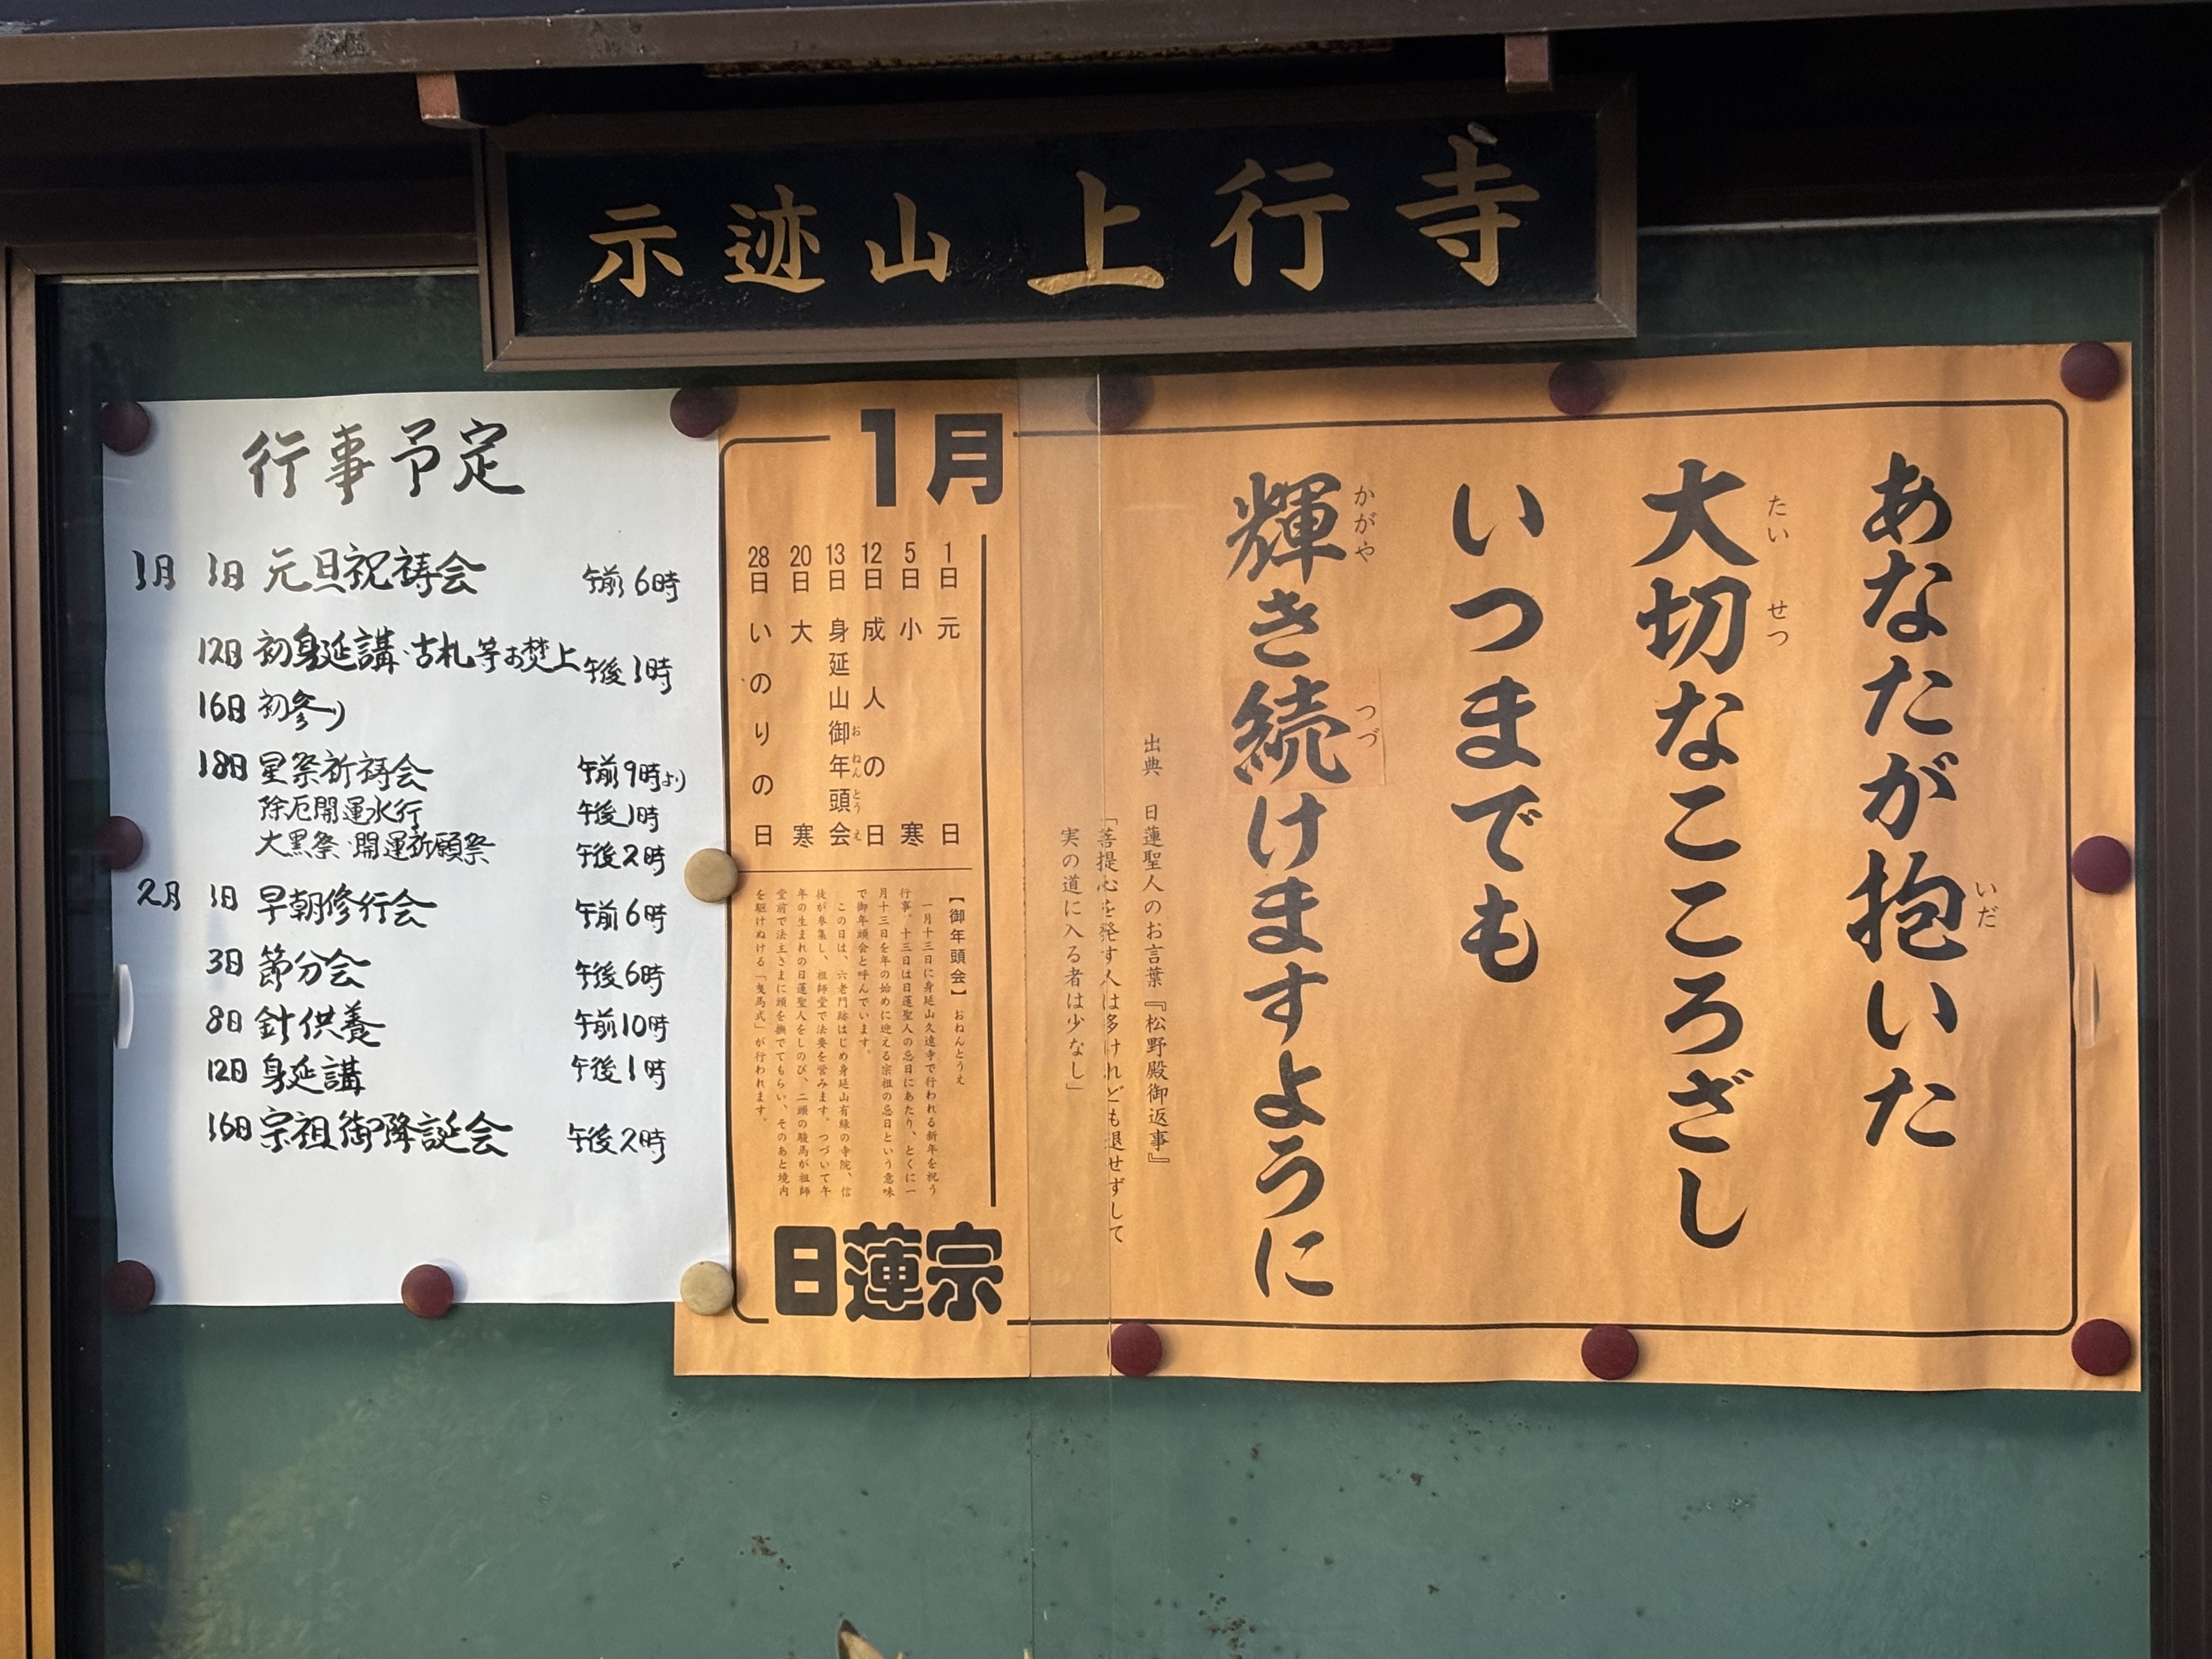 示迹山上行寺
あなたが抱いた
いだ
大切なこころざし
たいせつ
いつまでも
輝き続けますように
かがや
つづ
出典　日蓮聖人のお言葉『松野殿御返事』
「菩提心を発す人は多けれども退せずして
実の道に入る者は少なし」
1月
1日 元日
5日 小寒
12日 成人の日
13日 身延山御年頭会
おねんとうえ
20日 大寒
28日 いのりの日
【御年頭会】おねんとうえ
一月十三日に身延山久遠寺で行われる新年を祝う
行事。十三日は日蓮聖人の忌日にあたり、とくに一
月十三日を年の始めに迎える宗祖の忌日という意味
で御年頭会と呼んでいます。
この日は、六老門跡はじめ身延山有縁の寺院、信
徒が参集し、祖師堂で法要を営みます。つづいて午
年の生まれの日蓮聖人をしのび、二頭の駿馬が祖師
堂前で法主さまに頭を撫でてもらい、そのあと境内
を駆けぬける「曳馬式」が行われます。
日蓮宗
行事予定
1月 1日 元旦祝祷会 午前6時
12日 初身延講・古札等お焚上 午後1時
16日 初参り
18日 星祭祈祷会 午前9時より
除厄開運水行 午後1時
大黒祭・開運祈願祭 午後2時
2月 1日 早朝修行会 午前6時
3日 節分会 午後6時
8日 針供養 午前10時
12日 身延講 午後1時
16日 宗祖御降誕会 午後2時